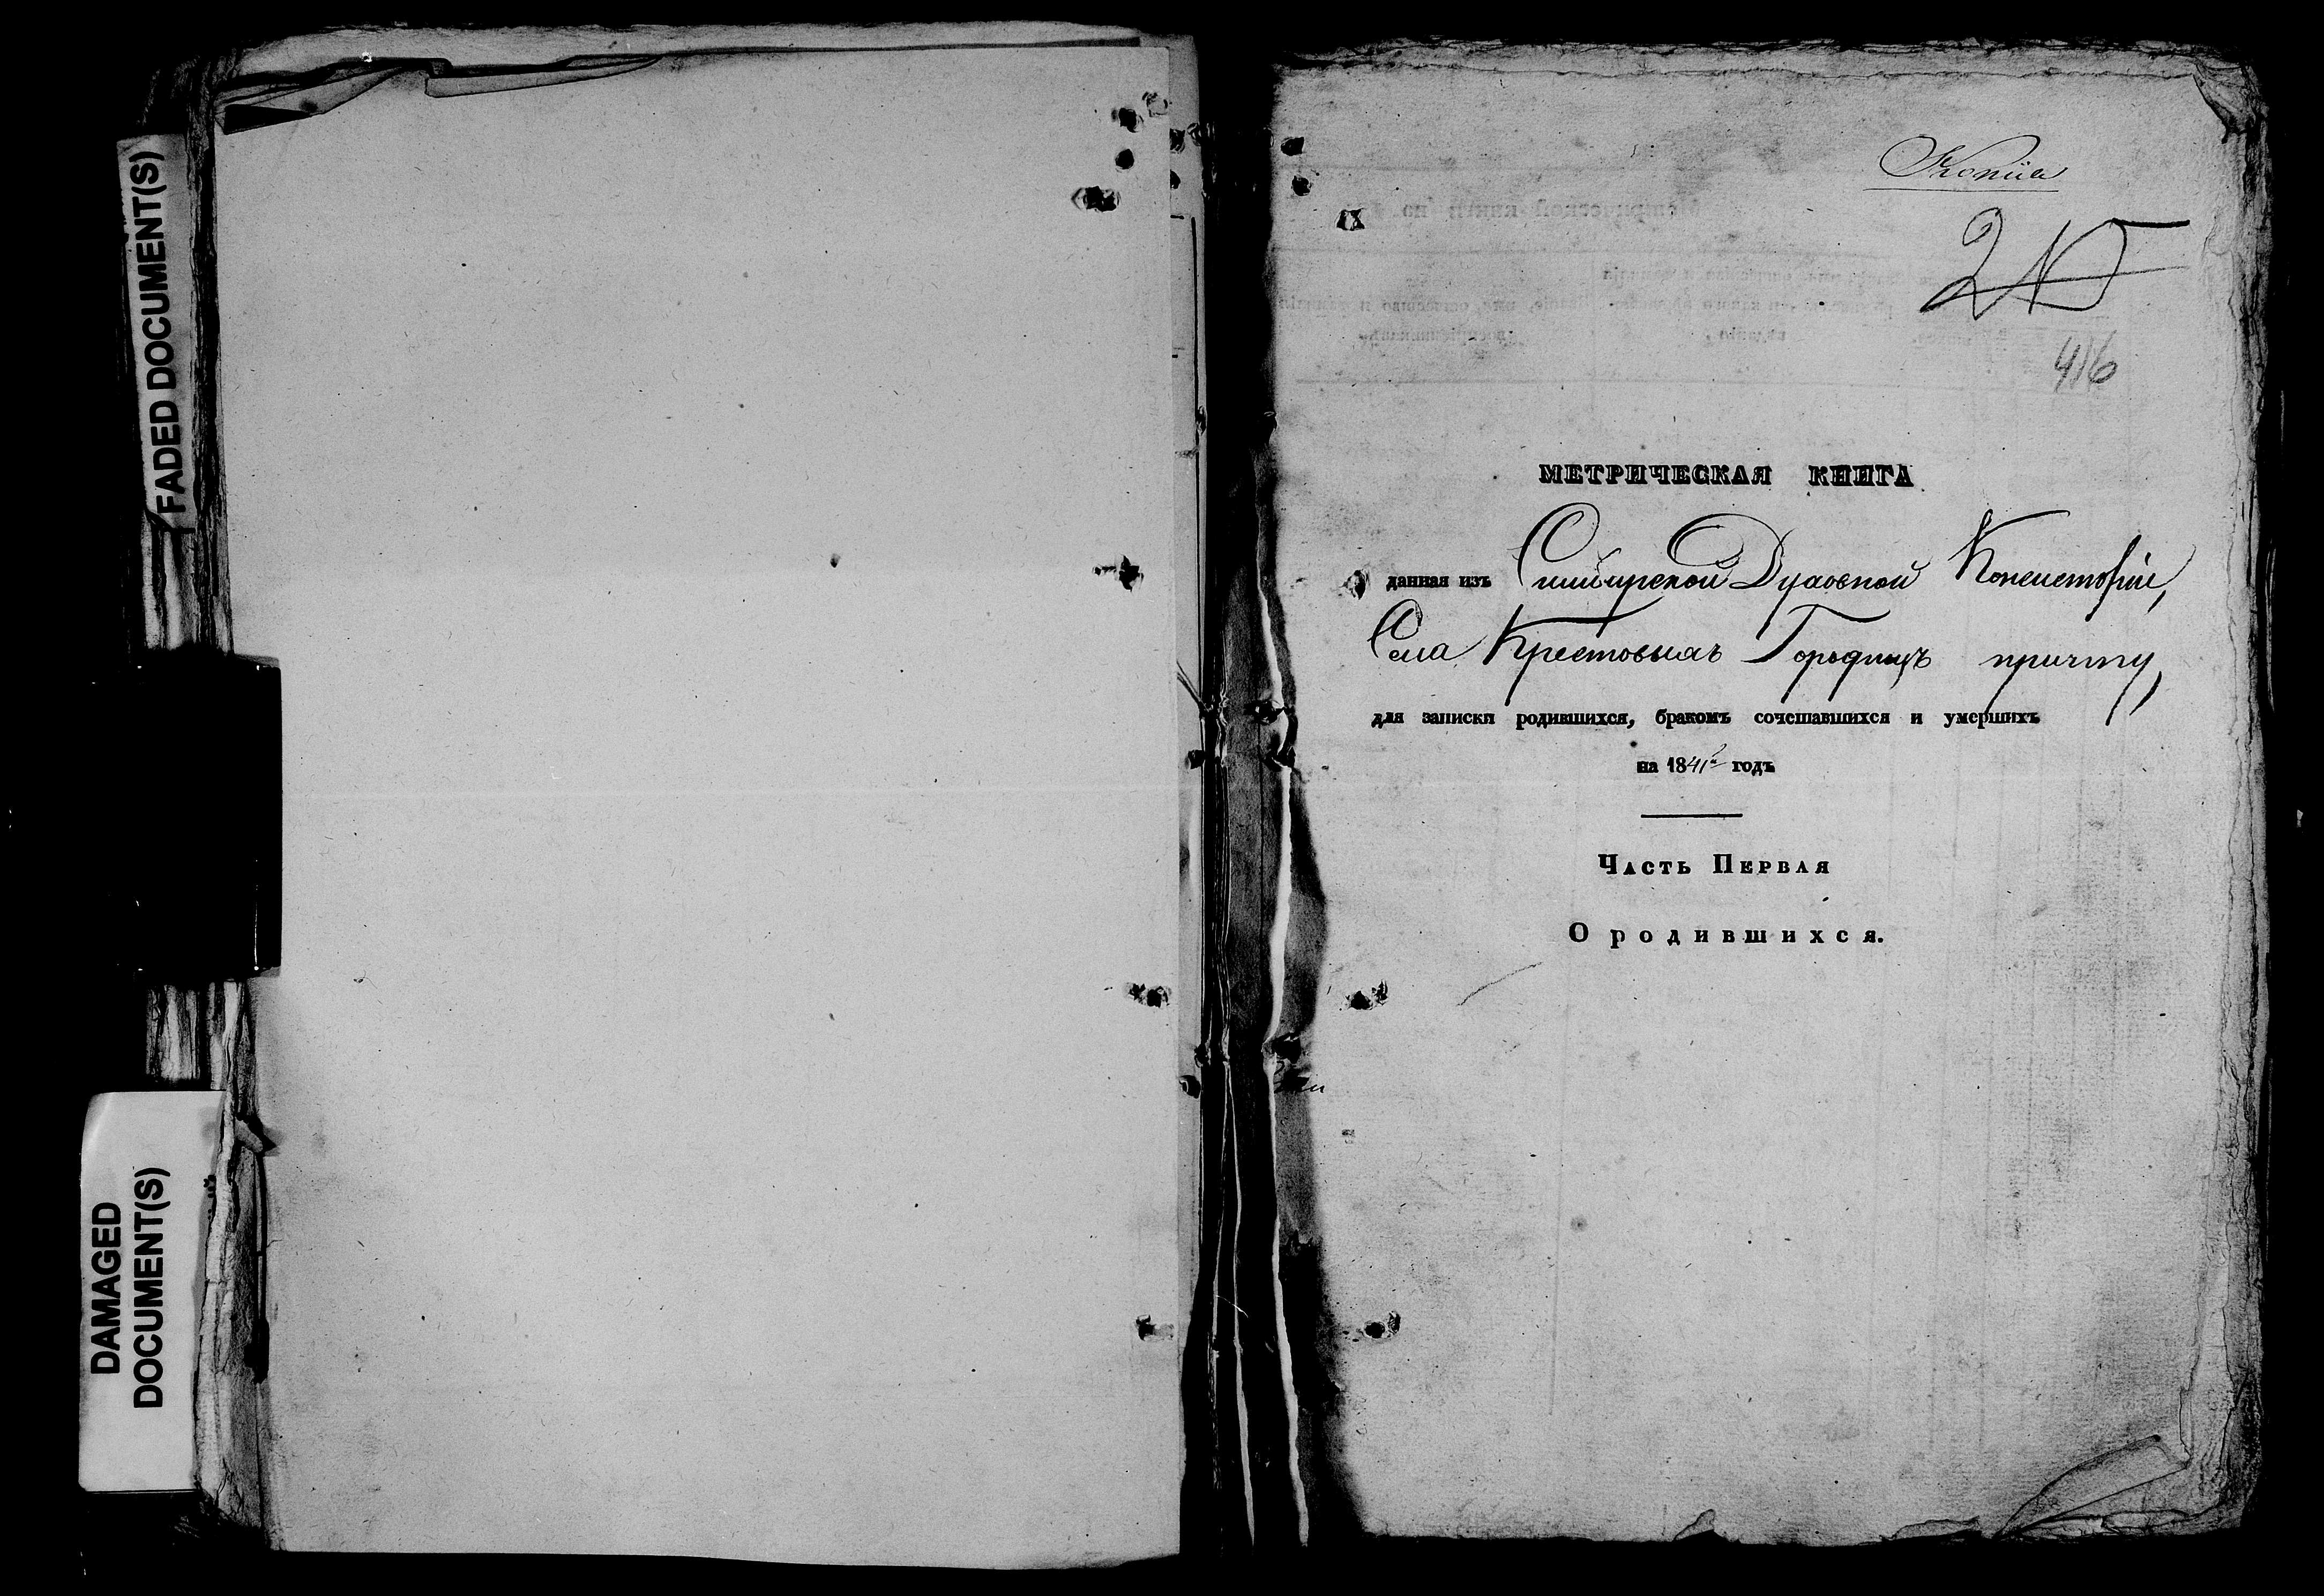 FADED DOCUMENT(S)
DAMAGED
DOCUMENT(S)
Копiя
IX
416
МЕТРИЧЕСКАЯ КНИГА
данная изъ Симбирской Духовной Консисторiи,
Села Крестовыхъ Городищъ причту,
для записки родившихся, бракомъ сочетавшихся и умершихъ
на 1841й годъ
Часть Первая
О родившихся.